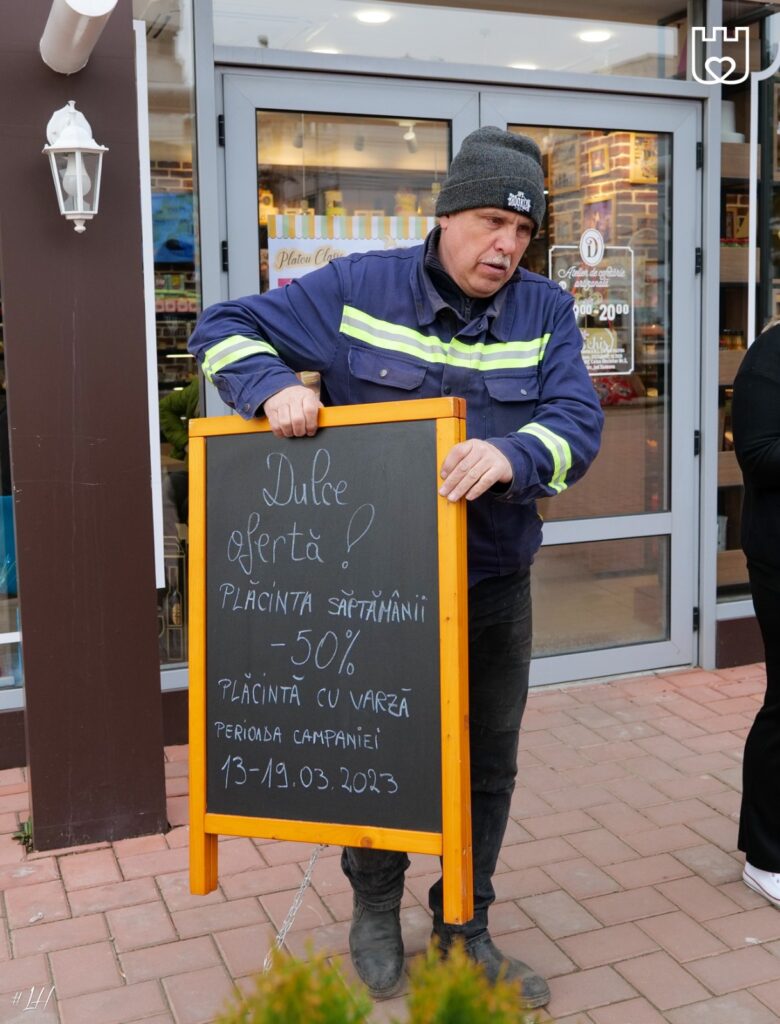 Platou Clasic
Atelier de cofetărie
artizanală
00-2000
Dulce
ofertă!
PLĂCINTA SĂPTĂMÂNII
-50%
PLĂCINTĂ CU VARZĂ
PERIOADA CAMPANIEI
13-19.03.2023
#LH